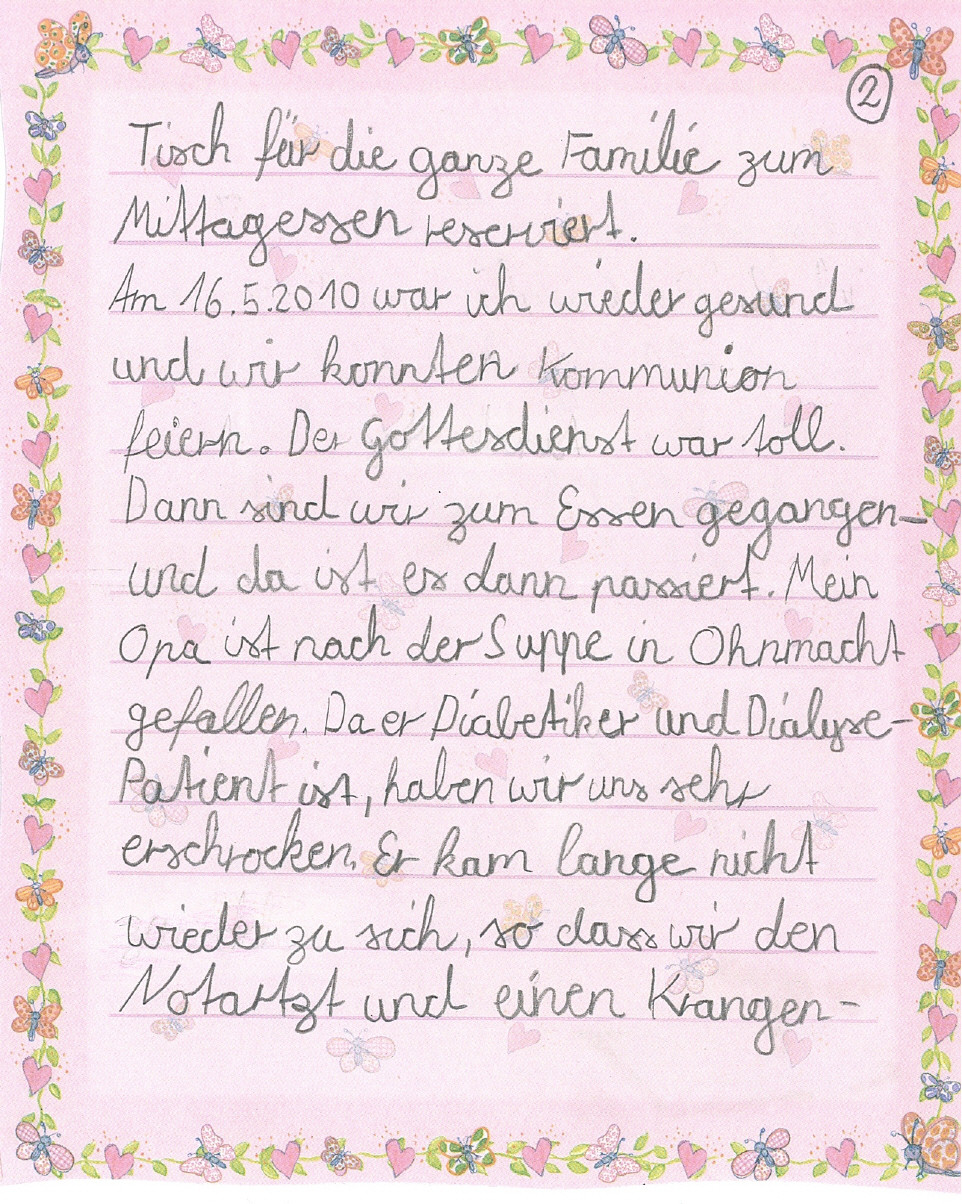 2
Tisch für die ganze Familie zum
Mittagessen reserviert.
Am 16.5.2010 war ich wieder gesund
und wir konnten Kommunion
feiern. Der Gottesdienst war toll.
Dann sind wir zum Essen gegangen-
und da ist es dann passiert. Mein
Opa ist nach der Suppe in Ohnmacht
gefallen. Da er Diabetiker und Dialyse-
Patient ist, haben wir uns sehr
erschrocken. Er kam lange nicht
wieder zu sich, so dass wir den
Notartzt und einen Krangen-